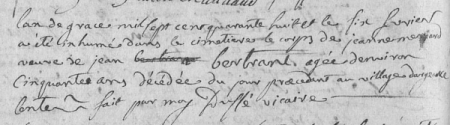 Lan de grace mil sept cent quarante huit et le six fevrier
a été inhumé dans le cimetiere le corps de jeanne menjard
veuve de jean bertrand agée denviron
Cinquante ans décédée du jour précedent au village
fait par moy Duffé vicaire